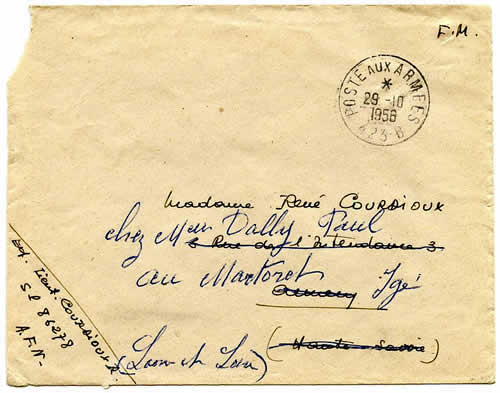 F.M.
POSTE AUX ARMEES
*
29-10
1956
423-B
Madame René COURDIOUX
chez Mme Dally Paul
Rue de l'Intendance 3
au Martoret Igé
Annecy
(Haute-Savoie)
(Saône et Loire)
exp. Lieut. COURDIOUX R.
SP 86278
A.F.N-